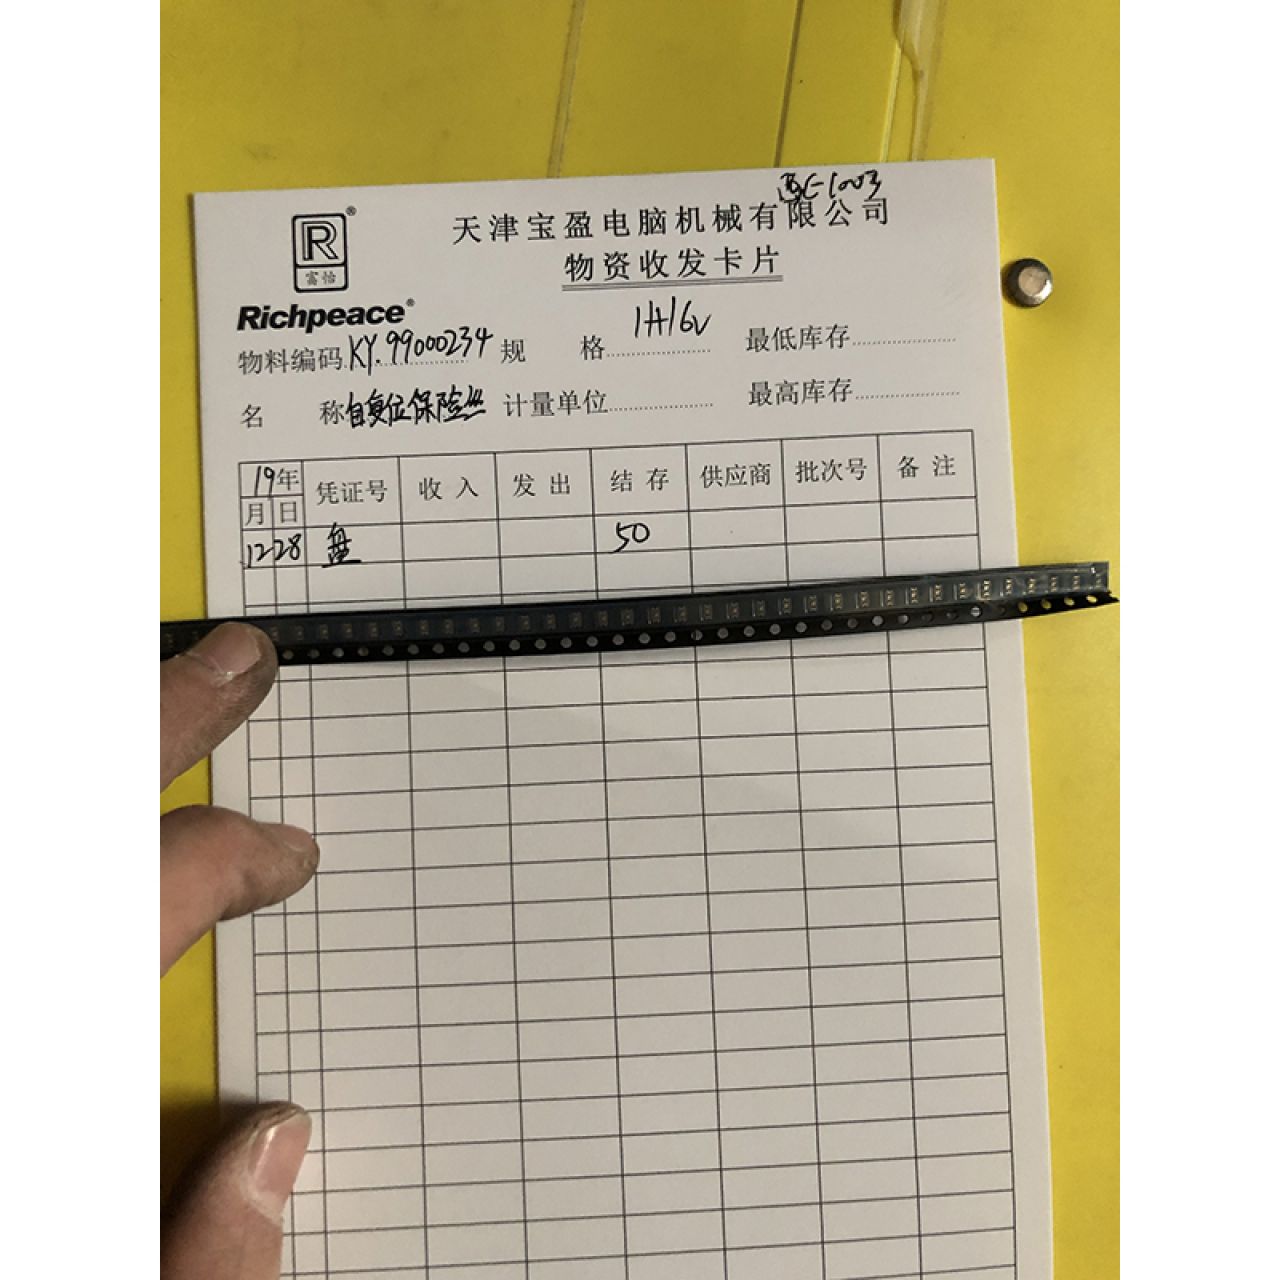 西C-1003
天津宝盈电脑机械有限公司
物资收发卡片
R®
富怡
Richpeace®
物料编码 KY.99000234 规 格 1A16V 最低库存
名 称 自复位保险丝 计量单位 最高库存
19年 凭证号 收入 发出 结存 供应商 批次号 备注
月 日
12 28 盘 50